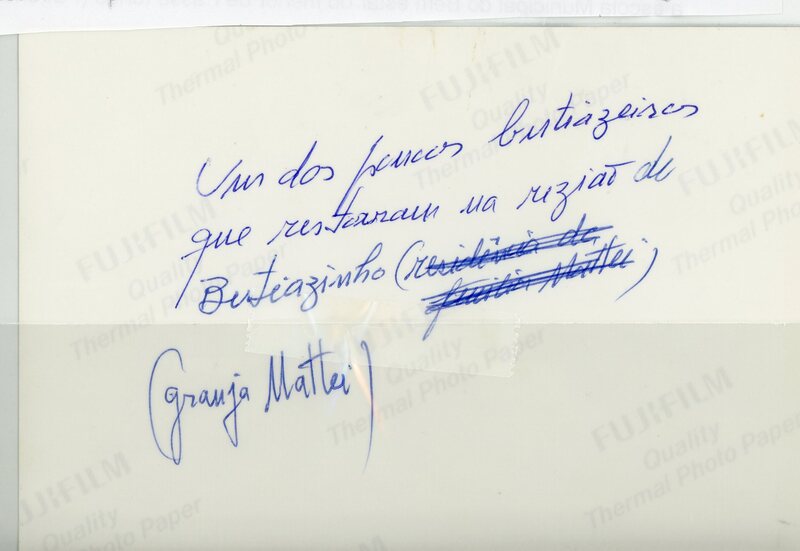 Um dos poucos butiazeiros
que restaram na região de
Butiazinho (residência da
família Mattei)
(granja Mattei)
FUJIFILM
Quality
Thermal Photo Paper
FUJIFILM
Quality
Thermal Photo Paper
FUJIFILM
Quality
Thermal Photo Paper
FUJIFILM
Quality
Thermal Photo Paper
Quality
Thermal Photo Paper
FUJIFILM
Quality
Thermal Photo Paper
FUJIFILM
Quality
Thermal Photo Paper